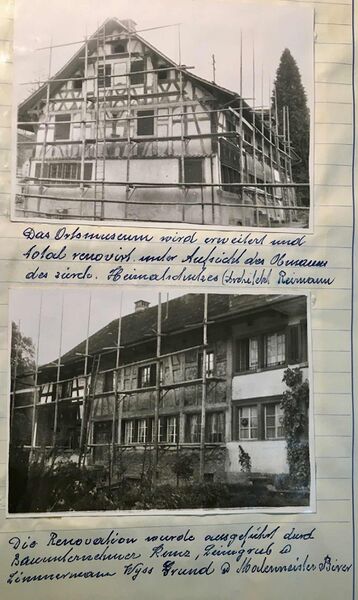 Das Ortsmuseum wird erweitert und
total renoviert unter Aufsicht des Obmanns
des zürch. Heimatschutzes (Archi)tekt Reimann
Die Renovation wurde ausgeführt durch
Bauunternehmer Renz,
Zimmermann Wyss Grund & Malermeister